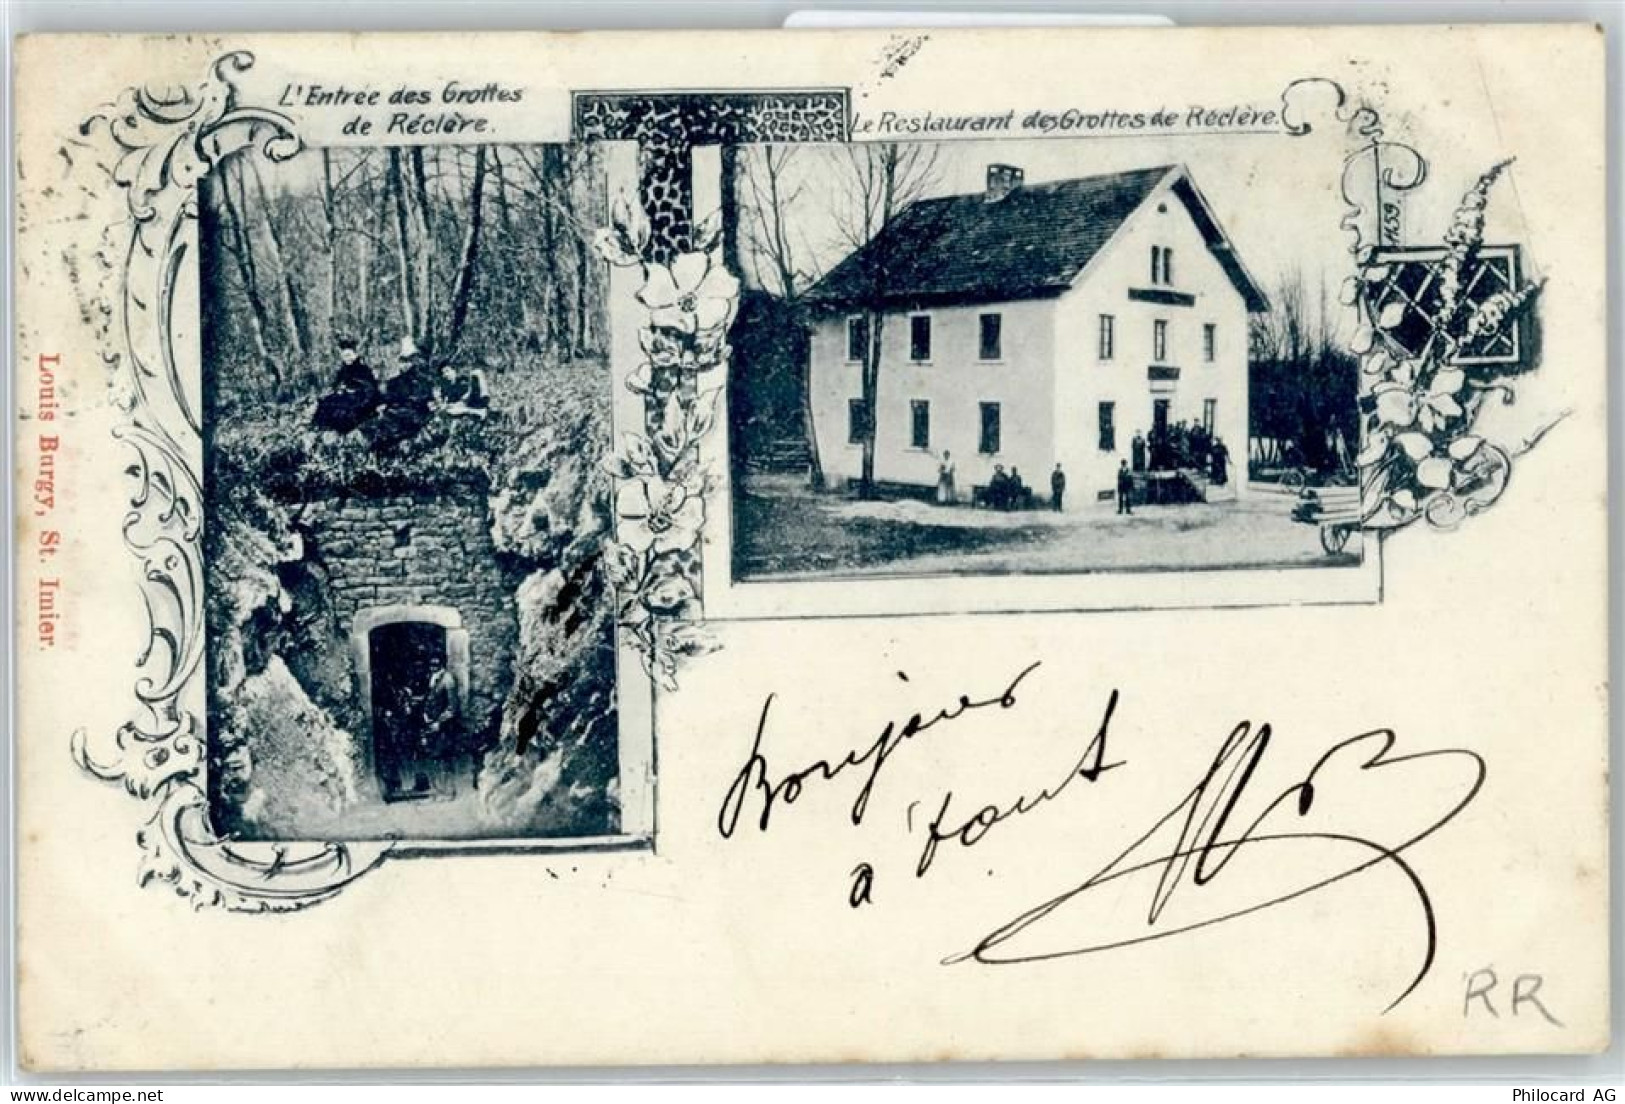 L'Entrée des Grottes
de Réclère.
Le Restaurant des Grottes de Réclère.
1439.
Louis Burgy, St. Imier.
Bonjour
a tout
RR
Philocard AG